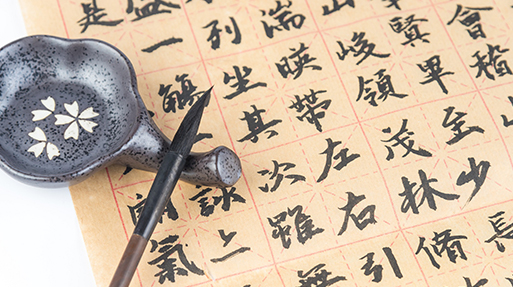 會稽
賢畢至少長
山峻領茂林脩
湍映帶左右引
列坐其次雖無
盛一觴詠
是氣